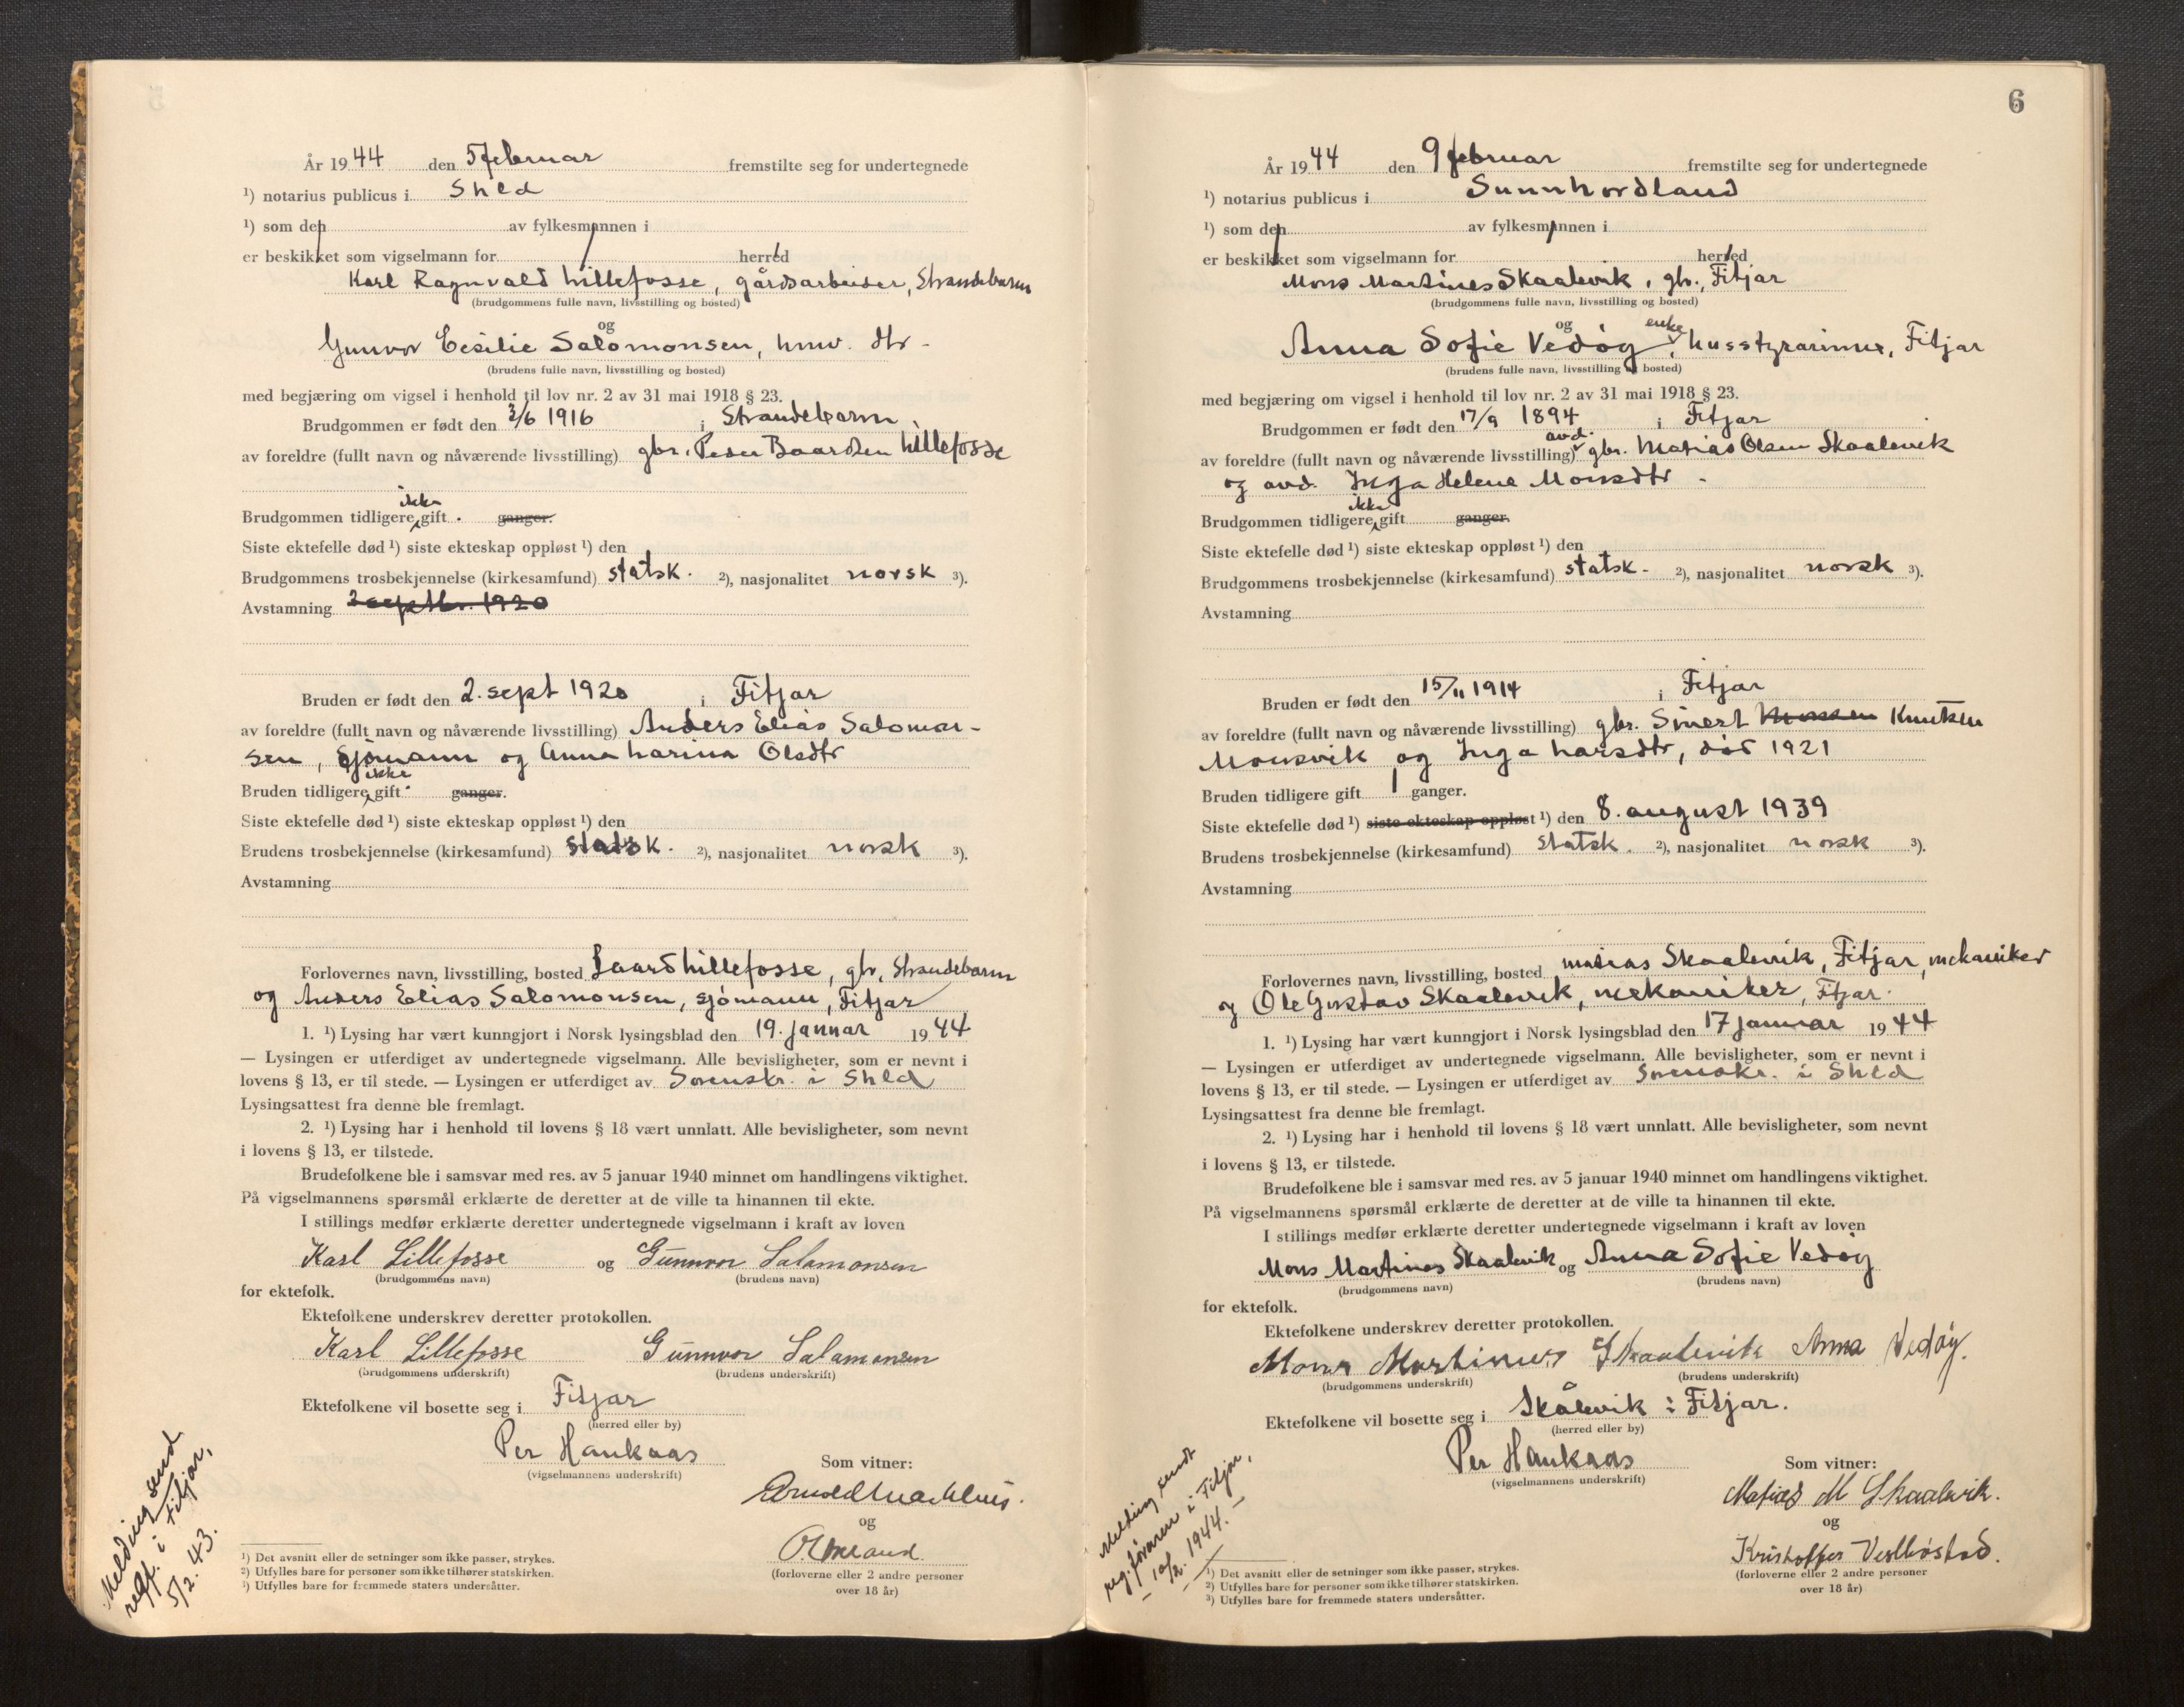 År 1944 den 5 februar fremstilte seg for undertegnede
¹) notarius publicus i Shld
¹) som den av fylkesmannen i
er beskikket som vigselmann for herred
Karl Ragnvald Lillefosse, gårdsarbeider, Strandebarm
(brudgommens fulle navn, livsstilling og bosted)
og
Gunvor Cesilie Salomonsen, hmv. Fitjar
(brudens fulle navn, livsstilling og bosted)
med begjæring om vigsel i henhold til lov nr. 2 av 31 mai 1918 § 23.
Brudgommen er født den 3/6 1916 i Strandebarm
av foreldre (fullt navn og nåværende livsstilling) gbr. Peder Baardsen Lillefosse
ikke
Brudgommen tidligere gift. ganger.
Siste ektefelle død ¹) siste ekteskap oppløst ¹) den
Brudgommens trosbekjennelse (kirkesamfund) statsk. ²), nasjonalitet norsk ³).
Avstamning 2 septbr. 1920
Bruden er født den 2. sept 1920 i Fitjar
av foreldre (fullt navn og nåværende livsstilling) Anders Elias Salomon-
sen, sjömann og Anna Larina Olsdtr
ikke
Bruden tidligere gift. ganger.
Siste ektefelle død ¹) siste ekteskap oppløst ¹) den
Brudens trosbekjennelse (kirkesamfund) statsk. ²), nasjonalitet norsk ³).
Avstamning
Forlovernes navn, livsstilling, bosted Baard Lillefosse, gbr, Strandebarm
og Anders Elias Salomonsen, sjömann, Fitjar
1. ¹) Lysing har vært kunngjort i Norsk lysingsblad den 19. januar 1944
— Lysingen er utferdiget av undertegnede vigselmann. Alle bevisligheter, som er nevnt i
lovens § 13, er til stede. — Lysingen er utferdiget av Sorenskr. i Shld
Lysingsattest fra denne ble fremlagt.
2. ¹) Lysing har i henhold til lovens § 18 vært unnlatt. Alle bevisligheter, som nevnt
i lovens § 13, er tilstede.
Brudefolkene ble i samsvar med res. av 5 januar 1940 minnet om handlingens viktighet.
På vigselmannens spørsmål erklærte de deretter at de ville ta hinannen til ekte.
I stillings medfør erklærte deretter undertegnede vigselmann i kraft av loven
Karl Lillefosse og Gunnvor Salamonsen
(brudgommens navn) (brudens navn)
for ektefolk.
Ektefolkene underskrev deretter protokollen.
Karl Lillefosse Gunnvor Salamonsen
(brudgommens underskrift) (brudens underskrift)
Ektefolkene vil bosette seg i Fitjar
(herred eller by)
Per Haukaas
(vigselmannens underskrift)
Som vitner:
og
(forloverne eller 2 andre personer
over 18 år)
Melding send
regf. i Fitjar,
5/2. 43.
¹) Det avsnitt eller de setninger som ikke passer, strykes.
²) Utfylles bare for personer som ikke tilhører statskirken.
³) Utfylles bare for fremmede staters undersåtter.
6
År 1944 den 9 februar fremstilte seg for undertegnede
¹) notarius publicus i Sunnhordland
¹) som den av fylkesmannen i
er beskikket som vigselmann for herred
Mons Martines Skaalevik, gbr., Fitjar
(brudgommens fulle navn, livsstilling og bosted)
og
enke
Anna Sofie Vedøy, husstyrarinne, Fitjar
(brudens fulle navn, livsstilling og bosted)
med begjæring om vigsel i henhold til lov nr. 2 av 31 mai 1918 § 23.
Brudgommen er født den 17/9 1894 i Fitjar
avd.
av foreldre (fullt navn og nåværende livsstilling) gbr. Matias Olsen Skaalevik
og avd. Inga Helene Monsdtr.
ikke
Brudgommen tidligere gift ganger.
Siste ektefelle død ¹) siste ekteskap oppløst ¹) den
Brudgommens trosbekjennelse (kirkesamfund) statsk. ²), nasjonalitet norsk ³).
Avstamning
Bruden er født den 15/11 1914 i Fitjar
av foreldre (fullt navn og nåværende livsstilling) gbr. Sivert Knutsen
Monsvik og Inga Larsdtr, död 1921
Bruden tidligere gift 1 ganger.
Siste ektefelle død ¹) siste ekteskap oppløst ¹) den 8. august 1939
Brudens trosbekjennelse (kirkesamfund) statsk. ²), nasjonalitet norsk ³).
Avstamning
Forlovernes navn, livsstilling, bosted Matias Skaalevik, Fitjar, mekaniker
og Ole Gustav Skaalevik, mekaniker, Fitjar.
1. ¹) Lysing har vært kunngjort i Norsk lysingsblad den 17 januar 1944
— Lysingen er utferdiget av undertegnede vigselmann. Alle bevisligheter, som er nevnt i
lovens § 13, er til stede. — Lysingen er utferdiget av Sorenskr. i Shld
Lysingsattest fra denne ble fremlagt.
2. ¹) Lysing har i henhold til lovens § 18 vært unnlatt. Alle bevisligheter, som nevnt
i lovens § 13, er tilstede.
Brudefolkene ble i samsvar med res. av 5 januar 1940 minnet om handlingens viktighet.
På vigselmannens spørsmål erklærte de deretter at de ville ta hinannen til ekte.
I stillings medfør erklærte deretter undertegnede vigselmann i kraft av loven
Mons Martines Skaalevik og Anna Sofie Vedøy
(brudgommens navn) (brudens navn)
for ektefolk.
Ektefolkene underskrev deretter protokollen.
Mons Martinus Skaalevik Anna Vedøy.
(brudgommens underskrift) (brudens underskrift)
Ektefolkene vil bosette seg i Skålevik i Fitjar.
(herred eller by)
Per Haukaas
(vigselmannens underskrift)
Som vitner:
Matias M Skaalevik.
og
Kristoffer Vestbøstad.
(forloverne eller 2 andre personer
over 18 år)
Melding sendt
reg.föraren i Fitjar,
— 10/2. 1944. —
¹) Det avsnitt eller de setninger som ikke passer, strykes.
²) Utfylles bare for personer som ikke tilhører statskirken.
³) Utfylles bare for fremmede staters undersåtter.